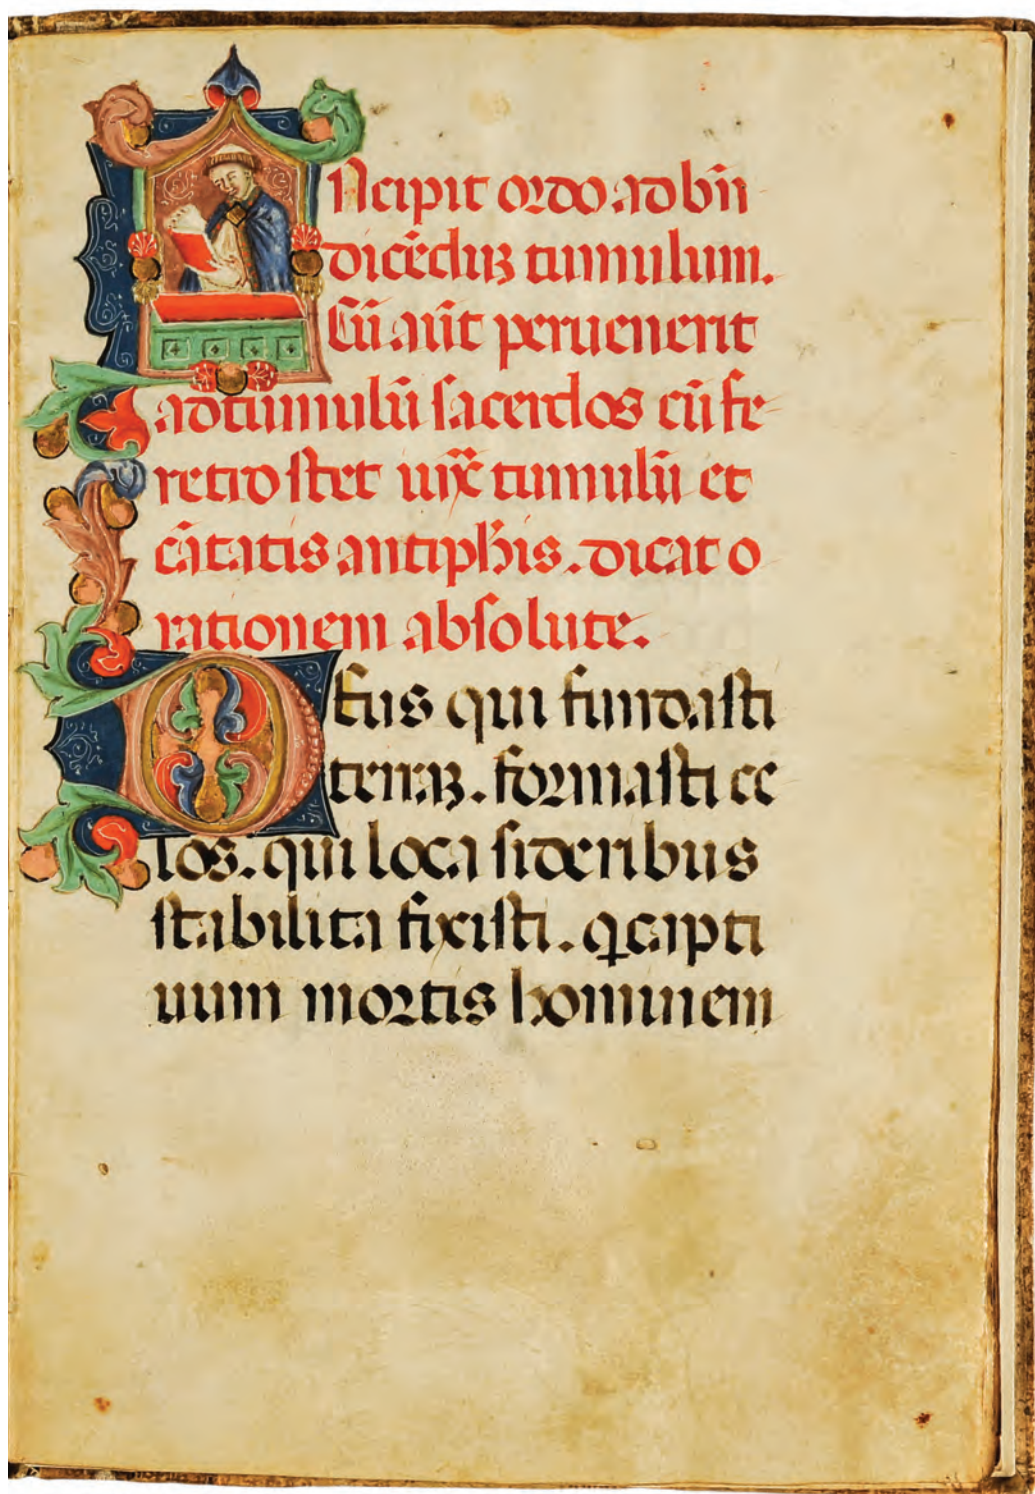 Ncipit ordo ad bn̄
dicēduꝫ tumulum.
Cū aūt peruenerit
ad tumulū sacerdos cū fe
retro stet iuxͣ tumulū et
cātatis antiphīs. dicat o
rationem absolute.
Deus qui fundasti
terraꝫ. formasti ce
los. qui loca sideribus
stabilita fixisti. q captí
uum mortis hominem